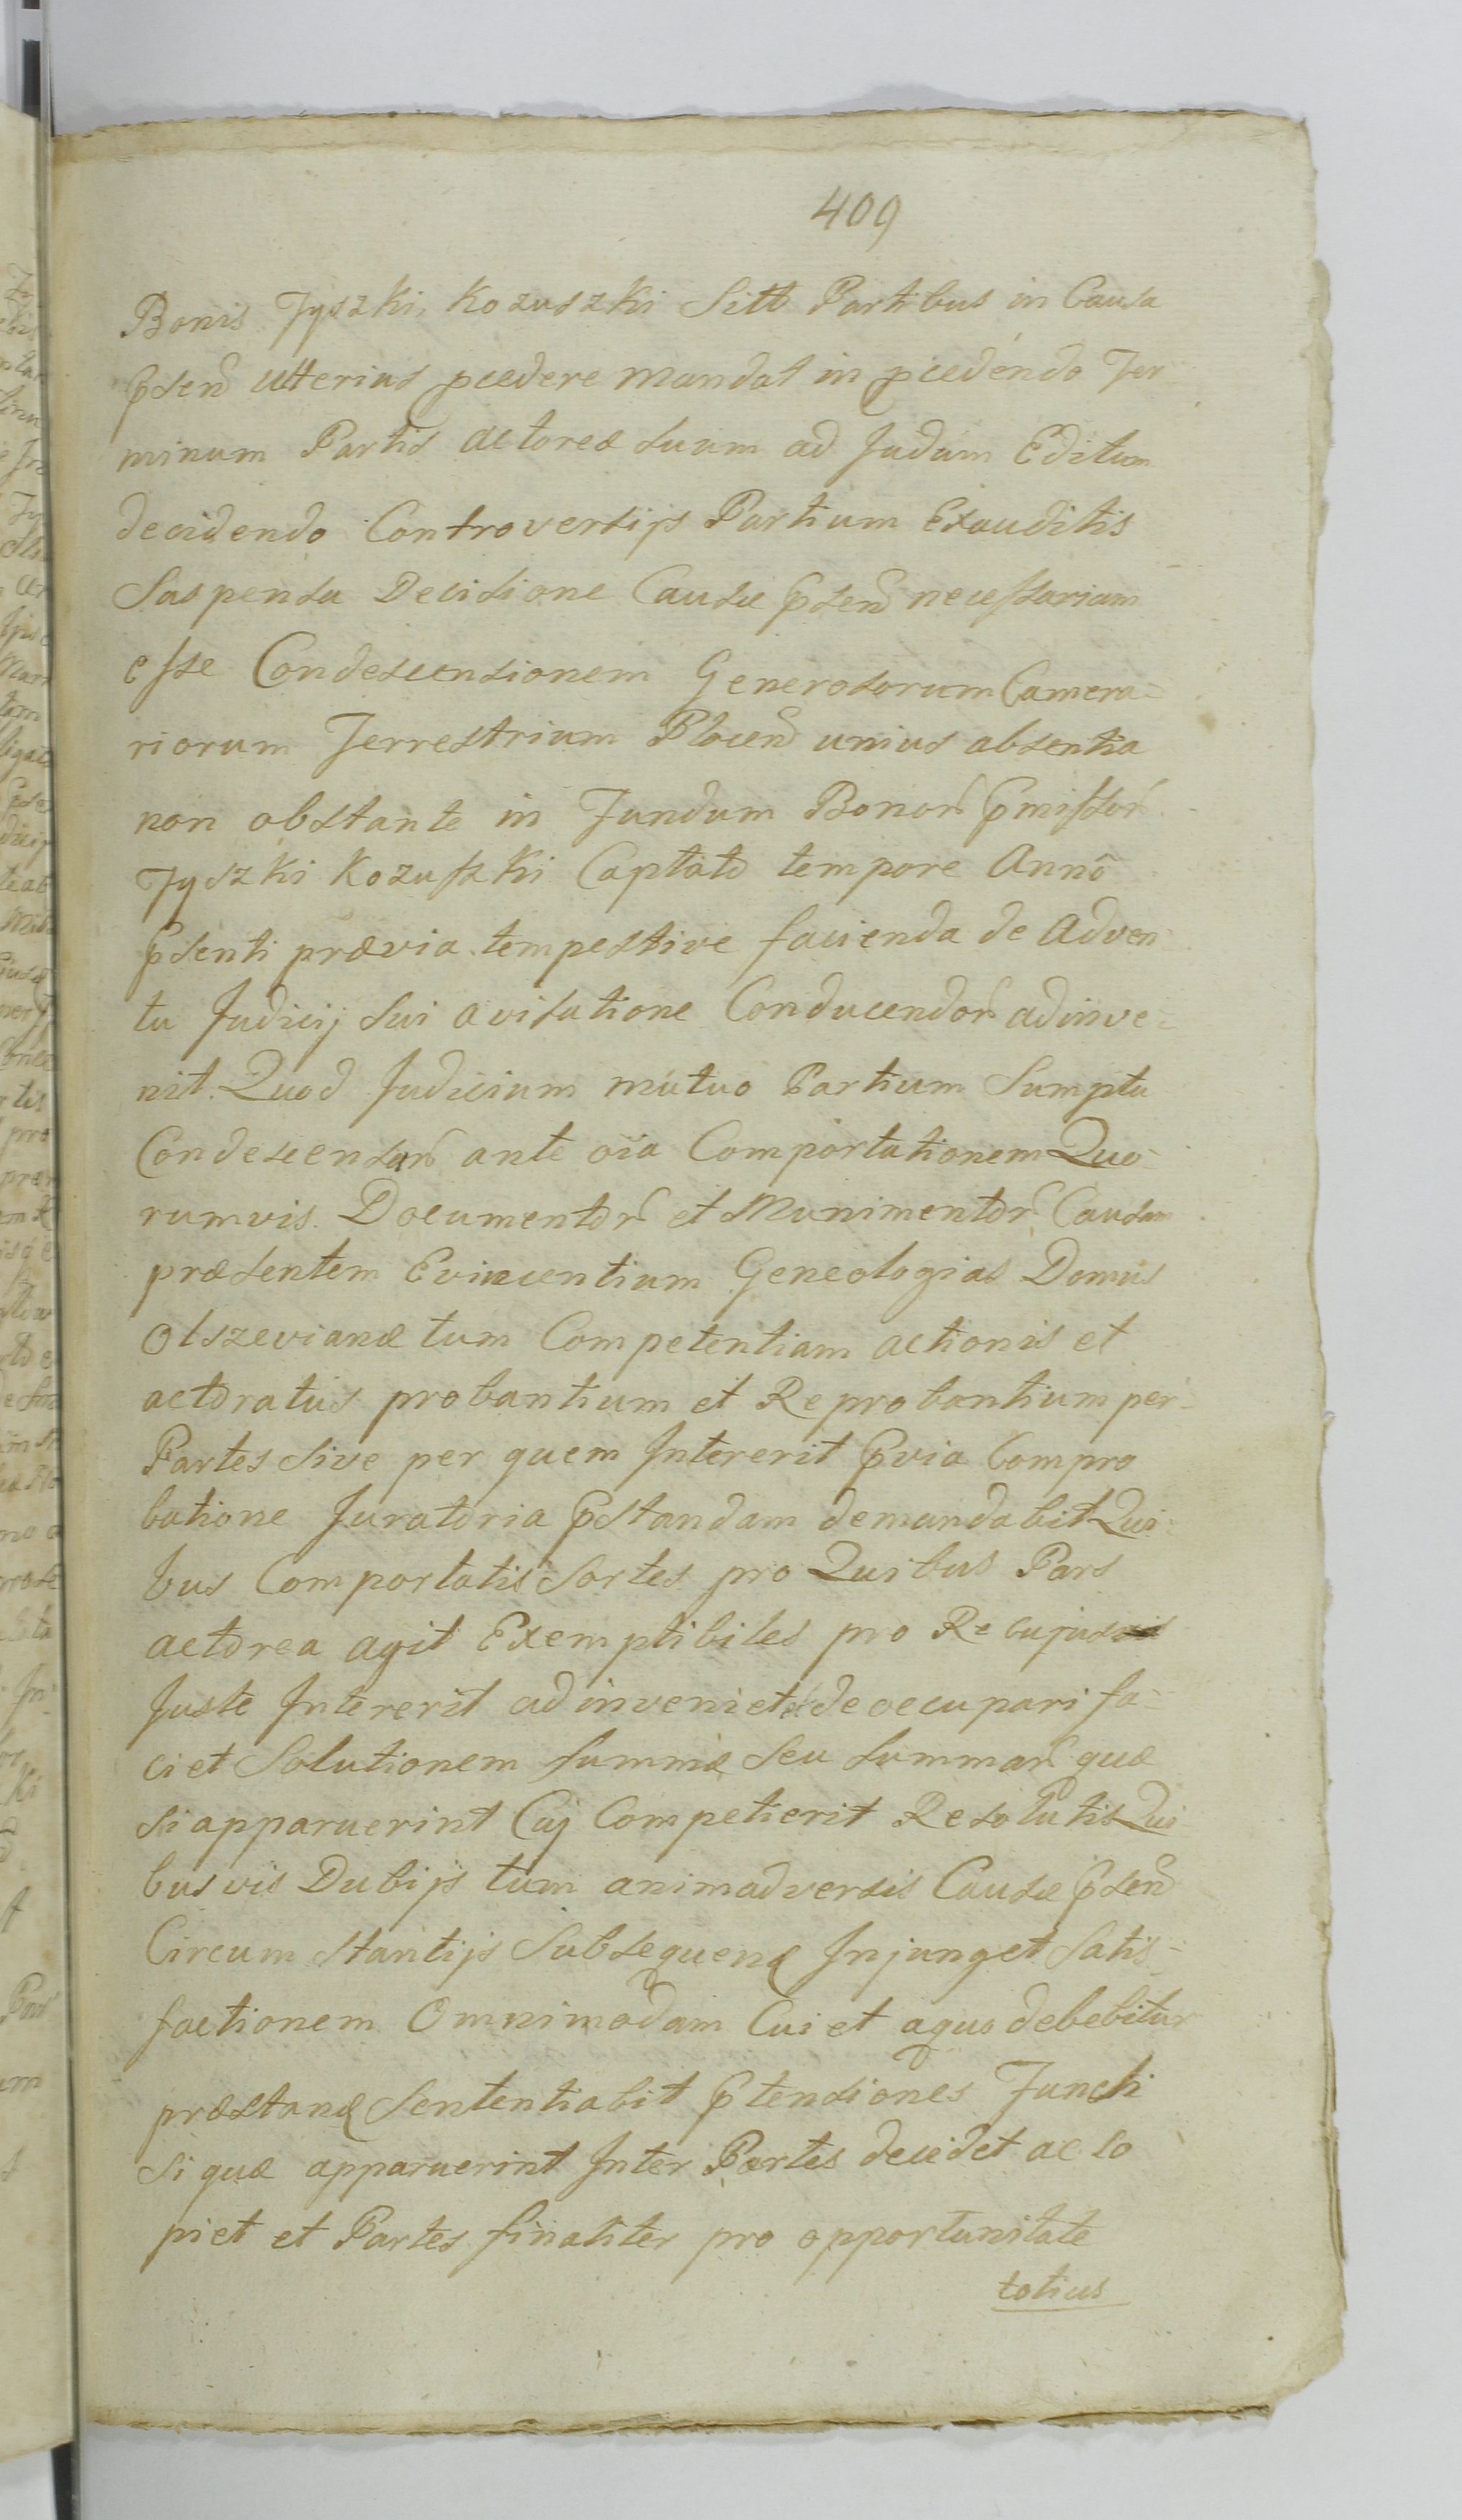 409
Bonis Tyszki, Kozuszki Sitt Partibus in Causa
pśenŧ ulterius pcedere mandat in pcedendo Ter
minum Partis actoreæ suum ad Judum Editum
decidendo Controversijs Partium Exauditis
Suspensa Decisione Causæ pśen necessariam
esse Condescensionem Generosorum Camera=
riorum Terrestrium Plocen unius absentia
non obstante in Fundum Bonor pmissor
Tyszki Kozuszki Captato tempore Anno
psenti prævia tempestive facienda de Adven
tu Judicij sui avisatione Conducendor adinve=
nit. Quod Judicium mutuo Partium Sumptu
Condescensur ante oia Comportationem Quo=
rumvis Documentor et Munimentor Causam
præsentem Evincentium Geneologias Domus
Olszevianæ tum Competentiam actionis et
actoratus probantium et Reprobantium per
Partes sive per quem Intererit pvia Compro
batione Juratoria pstandam demandabit Qui=
bus Comportatis Sortes pro Quibus Pars
actorea agit Exemptibiles pro Re cujus
Juste Intererit adinveniet et deoccupari fa=
ciet Solutionem summæ seu summar quæ
si apparuerint Cuj Competierit Resolutis Qui
busvis Dubijs tum animadversis Causæ psen
Circumstantijs Subsequen Injunget Satis=
factionem Omnimodam Cui et aquo debebitur
præstan Sententiabit ptensiones Fundi
si quæ apparuerint Inter Partes decidet ac so
piet et Partes finaliter pro opportunitate
totius